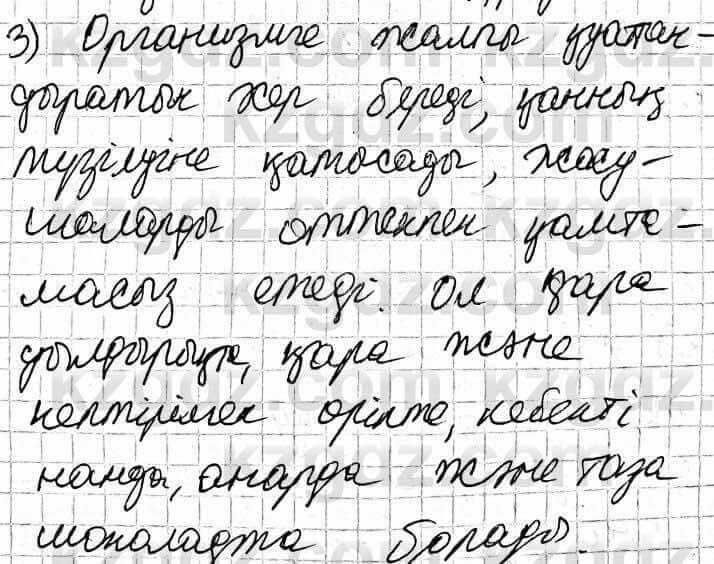 3) Организмге жалпы қуаттан-
дыратын әсер береді, қанның
түзілуіне қатысады, жасу-
шаларды оттекпен қамта-
масыз етеді. Ол қара
қара және
кептірілген өрікте, кебекті
нанда, анарда және таза
шоколадта болады.